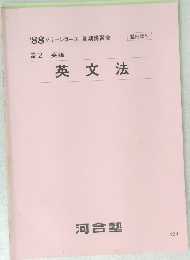 '88 グリーンコース 夏期講習会
高2 英語
英文法
河合塾